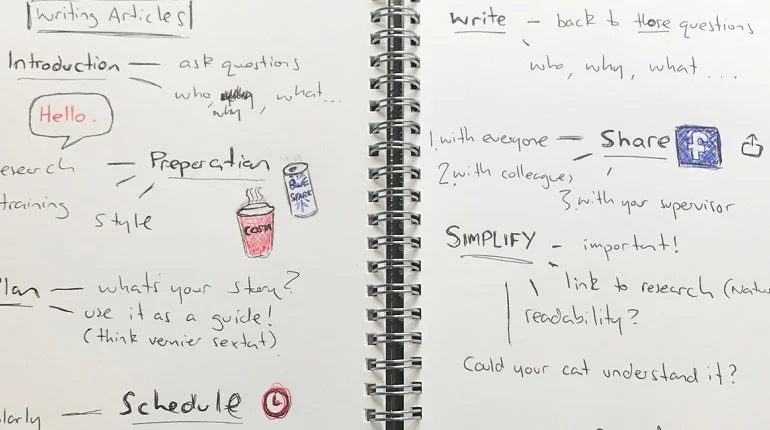 Writing Articles
Introduction — ask questions
who, why, what...
Hello.
esearch — Preperation
training
style
BLUE SPARK
COSTA
lan — what's your story?
use it as a guide!
(think vernier sextat).
larly — Schedule
Write — back to those questions
who, why, what...
1. with everyone — Share
f
2. with colleagues
3. with your supervisor
SIMPLIFY — important!
link to research (Natu
readability?
Could your cat understand it?